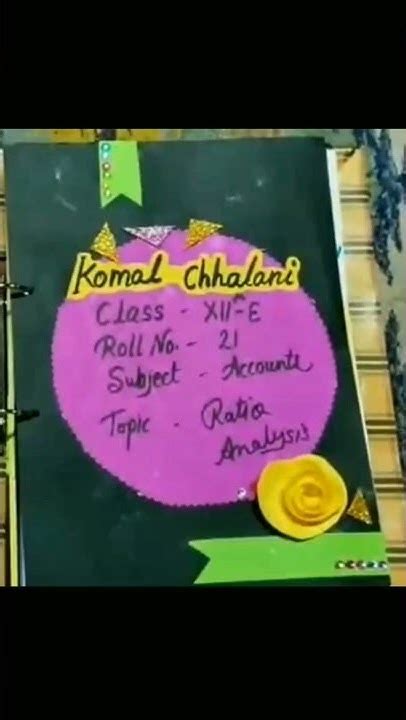 Komal Chhalani
Class - XII-E
Roll No. - 21
Subject - Accounts
Topic - Ratio
Analysis